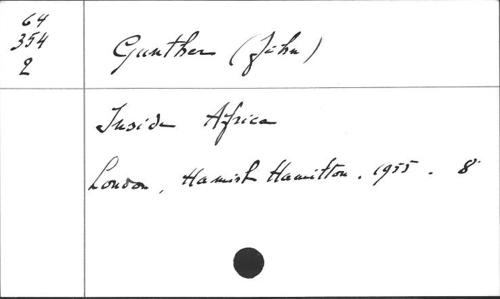 64
354
2
Gunther (John)
Inside Africa
London, Hamish Hamilton. 1955. 8°